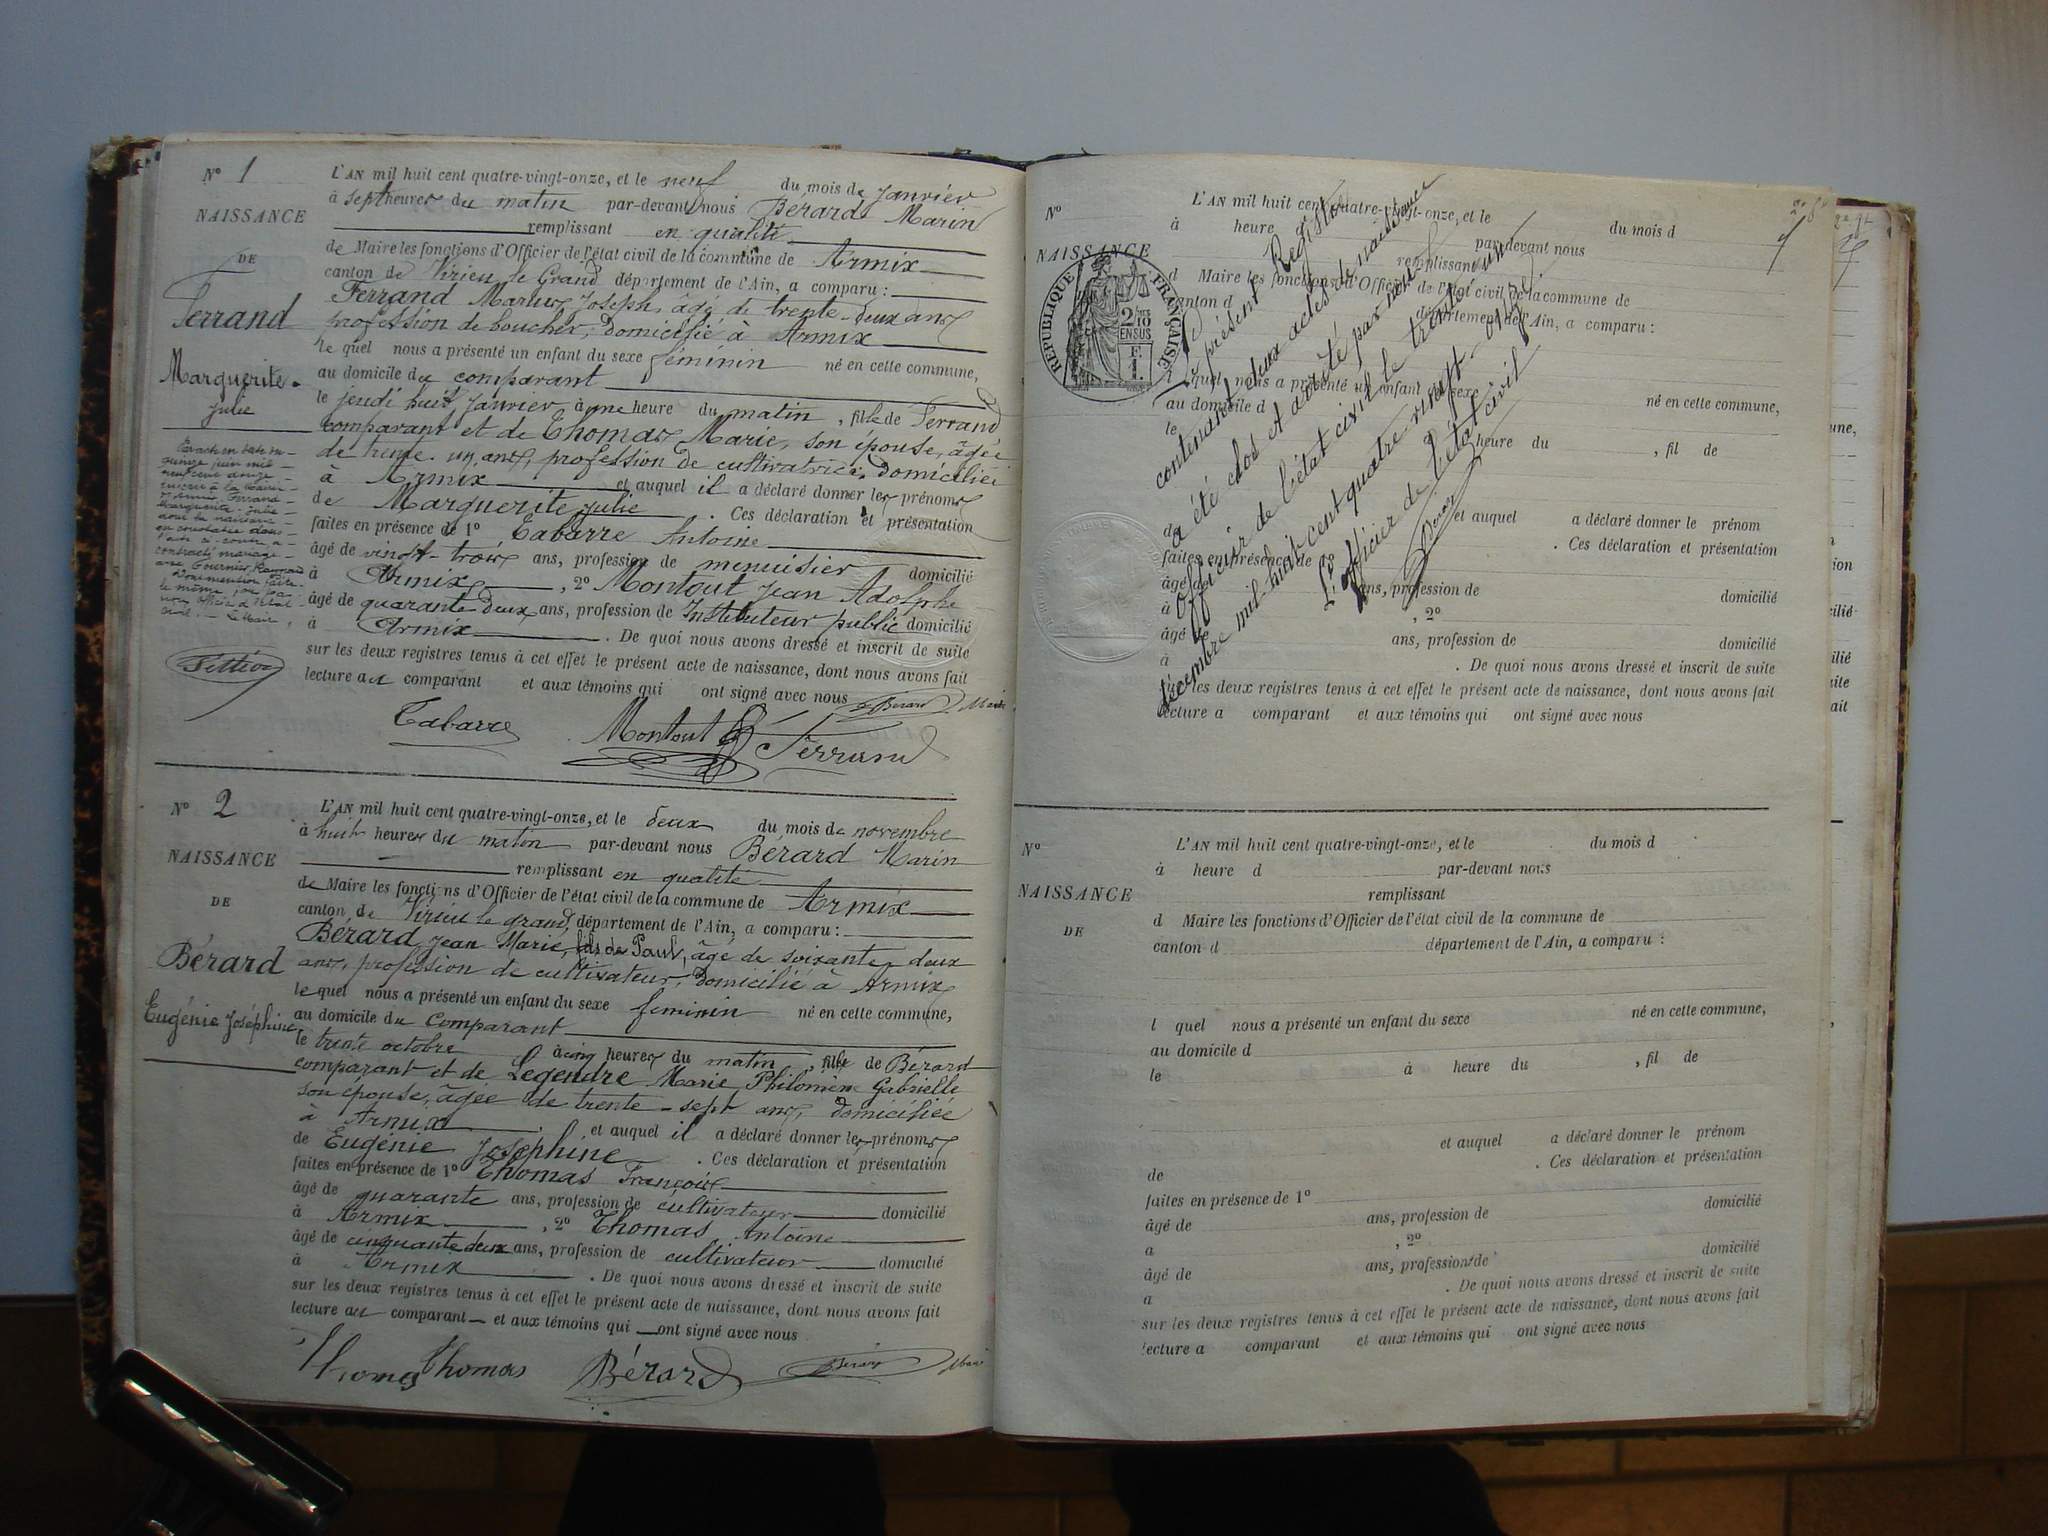 N° 1
NAISSANCE
DE
Ferrand
Marguerite
Julie
L'AN mil huit cent quatre-vingt-onze, et le neuf du mois de Janvier
à sept heures du matin par-devant nous Bérard Marin
remplissant en qualité
de Maire les fonctions d'Officier de l'état civil de la commune de Armix
canton de Virieu le Grand département de l'Ain, a comparu :
Ferrand Marius Joseph, âgé de trente-deux ans
profession de boucher, domicilié à Armix
le quel nous a présenté un enfant du sexe féminin né en cette commune,
au domicile du comparant
le jeudi huit Janvier à une heure du matin, fille de Ferrand
comparant et de Thomas Marie, son épouse, âgée
de trente-un ans, profession de cultivatrice, domiciliée
à Armix et auquel il a déclaré donner les prénoms
de Marguerite Julie. Ces déclaration et présentation
faites en présence de 1° Tabarre Antoine
âgé de vingt-trois ans, profession de menuisier domicilié
à Armix, 2° Montout Jean Adolphe
âgé de quarante deux ans, profession de Instituteur public domicilié
à Armix. De quoi nous avons dressé et inscrit de suite
sur les deux registres tenus à cet effet le présent acte de naissance, dont nous avons fait
lecture au comparant et aux témoins qui ont signé avec nous
Bérard
Tabarre Montout Ferrand
quinze juin mil
neuf cent
Ferrand
Marguerite Julie
dont la naissance
contracté mariage
avec Fournier
le même jour
N° 2
NAISSANCE
DE
Bérard
Eugénie Joséphine
L'AN mil huit cent quatre-vingt-onze, et le deux du mois de novembre
à huit heures du matin par-devant nous Bérard Marin
remplissant en qualité
de Maire les fonctions d'Officier de l'état civil de la commune de Armix
canton de Virieu le grand, département de l'Ain, a comparu :
Bérard Jean Marie, fils de Paul, âgé de soixante-deux
ans, profession de cultivateur, domicilié à Armix
le quel nous a présenté un enfant du sexe feminin né en cette commune,
au domicile du comparant
le trente octobre à cinq heures du matin, fille de Bérard
comparant et de Legendre Marie Philomène Gabrielle
son épouse, âgée de trente-sept ans, domiciliée
à Armix et auquel il a déclaré donner les prénoms
de Eugénie Joséphine. Ces déclaration et présentation
faites en présence de 1° Thomas François
âgé de quarante ans, profession de cultivateur domicilié
à Armix, 2° Thomas Antoine
âgé de cinquante deux ans, profession de cultivateur domicilié
à Armix. De quoi nous avons dressé et inscrit de suite
sur les deux registres tenus à cet effet le présent acte de naissance, dont nous avons fait
lecture au comparant et aux témoins qui ont signé avec nous
Thomas Thomas Bérard Bérard
N°
NAISSANCE
RÉPUBLIQUE FRANÇAISE
2/10
EN SUS
F.
1.
L'AN mil huit cent quatre-vingt-onze, et le du mois d
à heure par-devant nous
remplissant
d Maire les fonctions d'Officier de l'état civil de la commune de
canton d département de l'Ain, a comparu :
l quel nous a présenté un enfant du sexe né en cette commune,
au domicile d
le à heure du , fil de
et auquel a déclaré donner le prénom
de . Ces déclaration et présentation
faites en présence de
âgé de ans, profession de domicilié
à , 2°
âgé de ans, profession de domicilié
à . De quoi nous avons dressé et inscrit de suite
sur les deux registres tenus à cet effet le présent acte de naissance, dont nous avons fait
lecture a comparant et aux témoins qui ont signé avec nous
Le présent Registre
contenant deux actes de naissance
a été clos et arrêté par nous
officier de l'état civil le trente un
décembre mil huit cent quatre-vingt-onze.
L'officier de l'état civil
Bérard
N°
NAISSANCE
DE
L'AN mil huit cent quatre-vingt-onze, et le du mois d
à heure d par-devant nous
remplissant
d Maire les fonctions d'Officier de l'état civil de la commune de
canton d département de l'Ain, a comparu :
l quel nous a présenté un enfant du sexe né en cette commune,
au domicile d
le à heure du , fil de
et auquel a déclaré donner le prénom
de . Ces déclaration et présentation
faites en présence de 1°
âgé de ans, profession de domicilié
a , 2°
âgé de ans, profession de domicilié
a . De quoi nous avons dressé et inscrit de suite
sur les deux registres tenus à cet effet le présent acte de naissance, dont nous avons fait
lecture a comparant et aux témoins qui ont signé avec nous